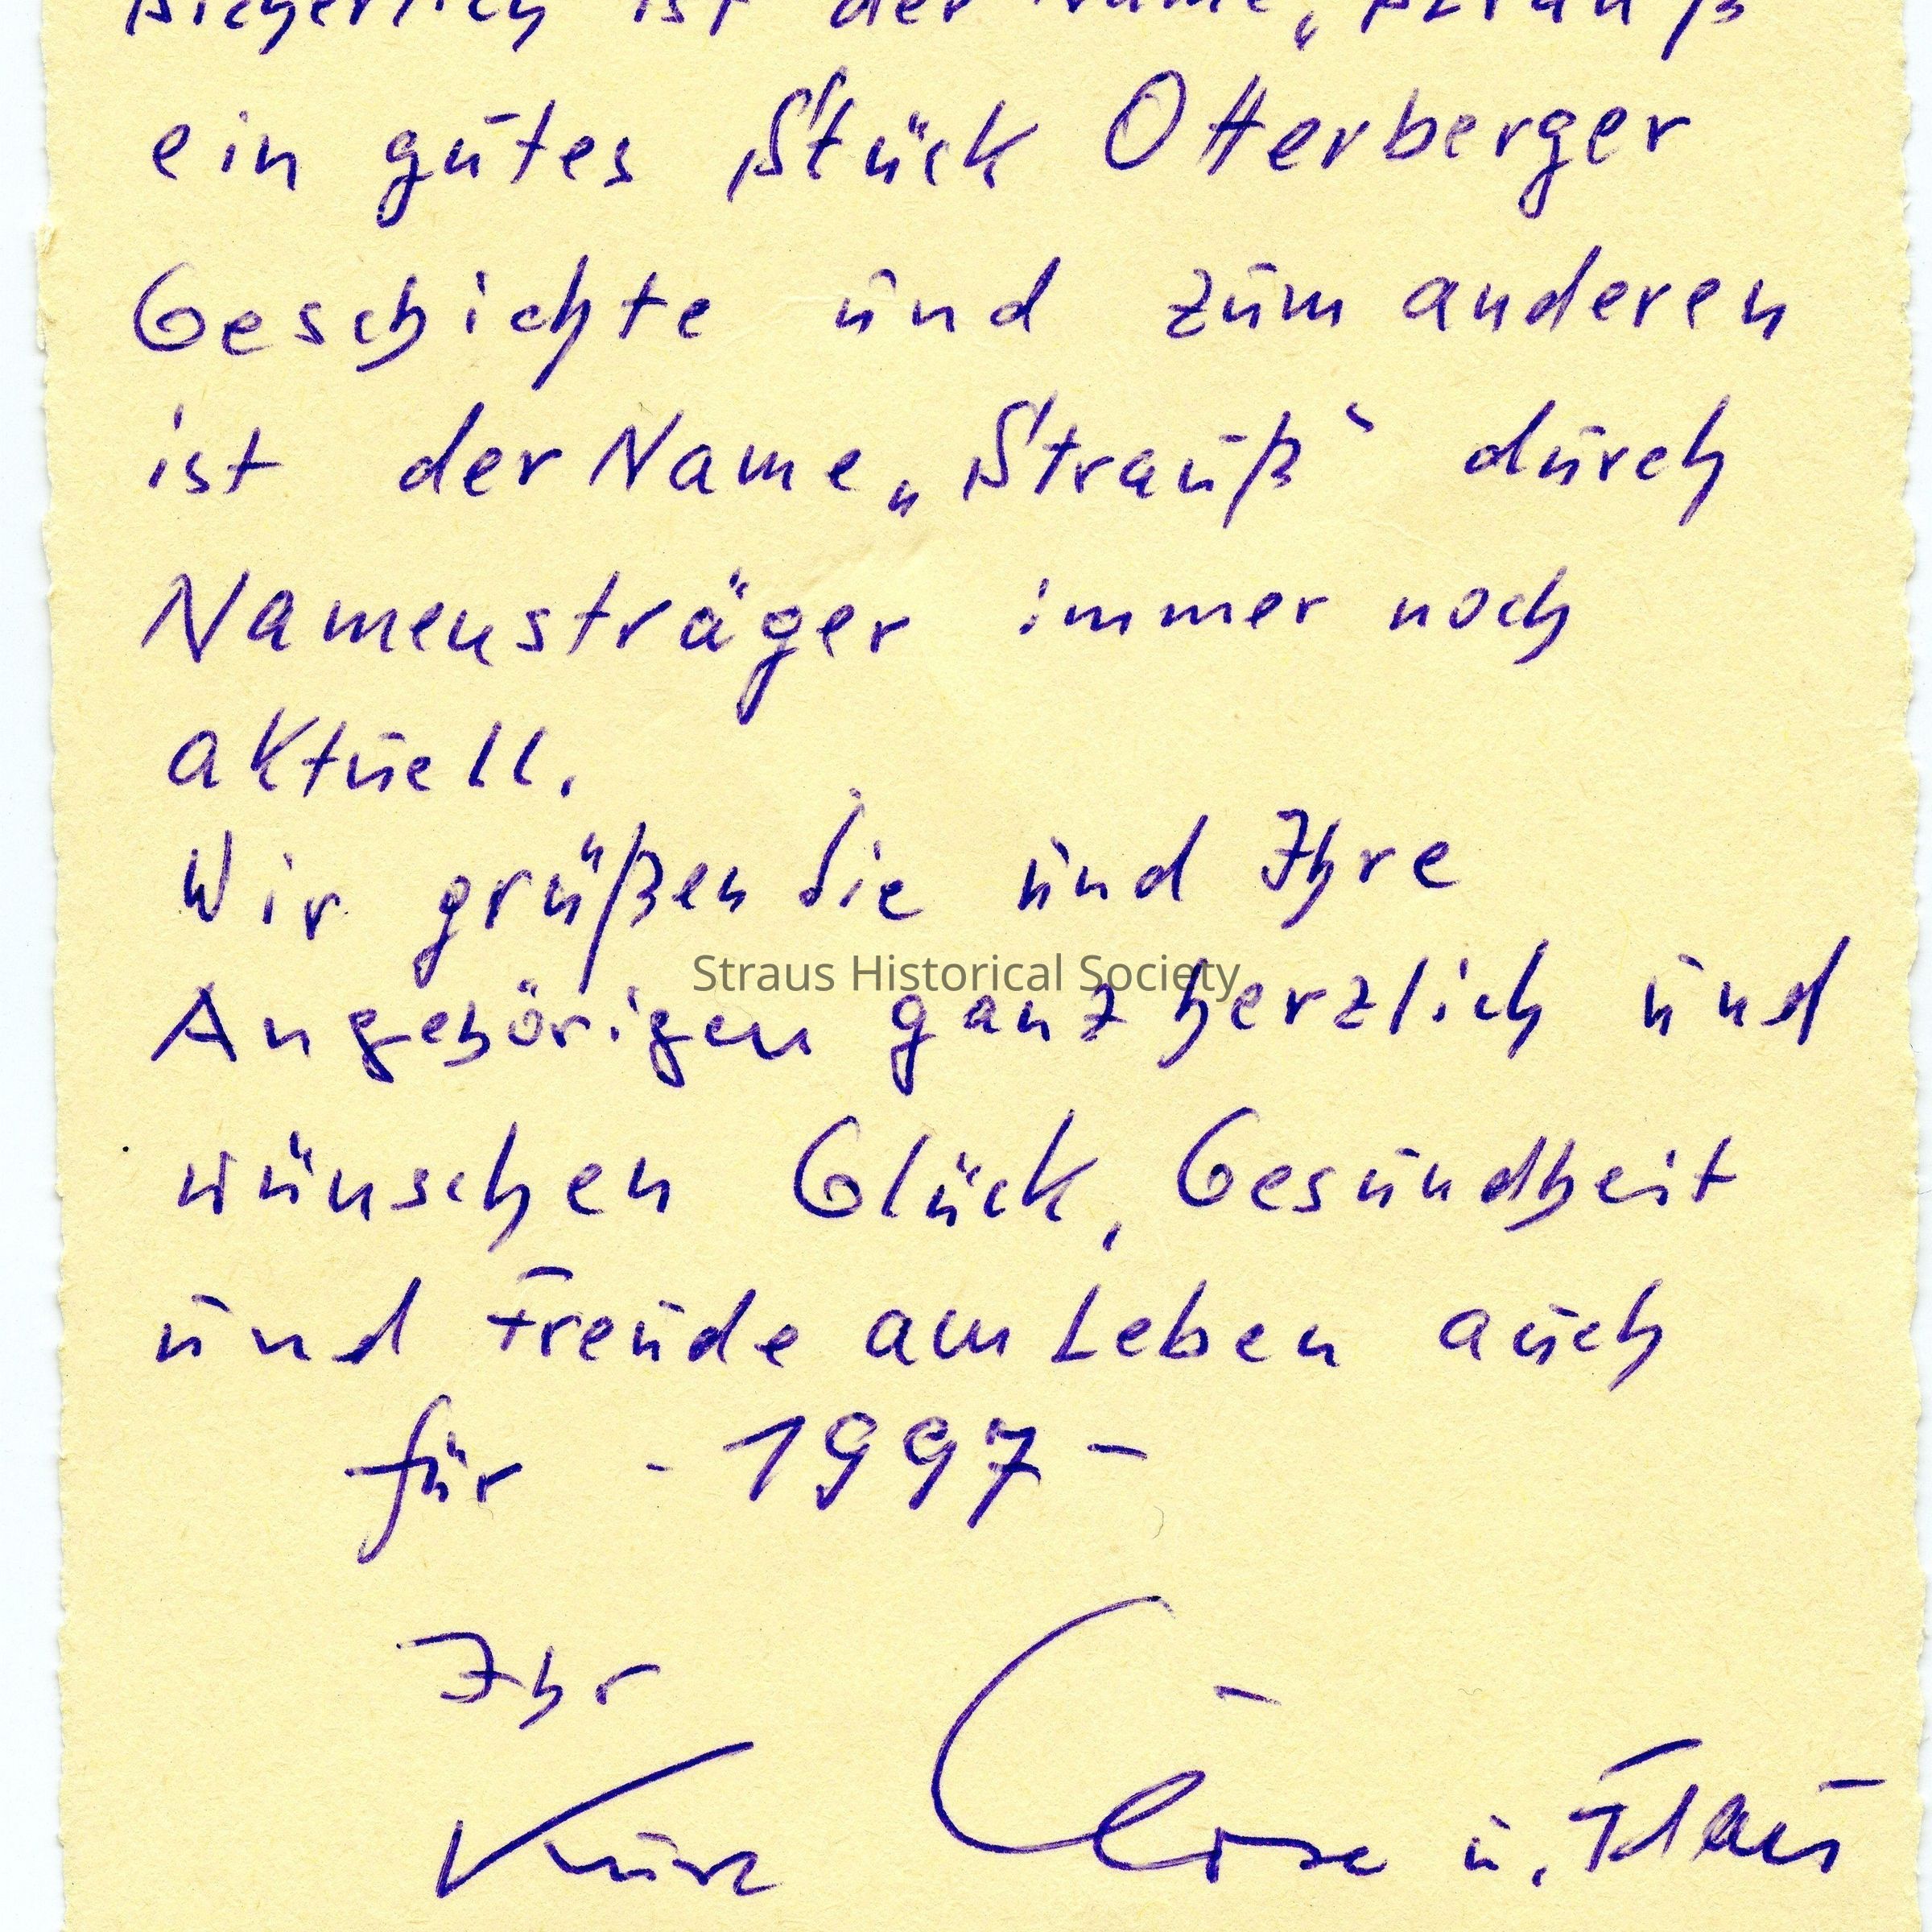 Sicherlich ist der Name „Strauß
ein gutes Stück Otterberger
Geschichte und zum anderen
ist der Name „Strauß“ durch
Namensträger immer noch
aktuell.
Wir grüßen Sie und Ihre
Straus Historical Society
Angehörigen ganz herzlich und
wünschen Glück, Gesundheit
und Freude am Leben auch
für - 1997 -
Ihr
u.